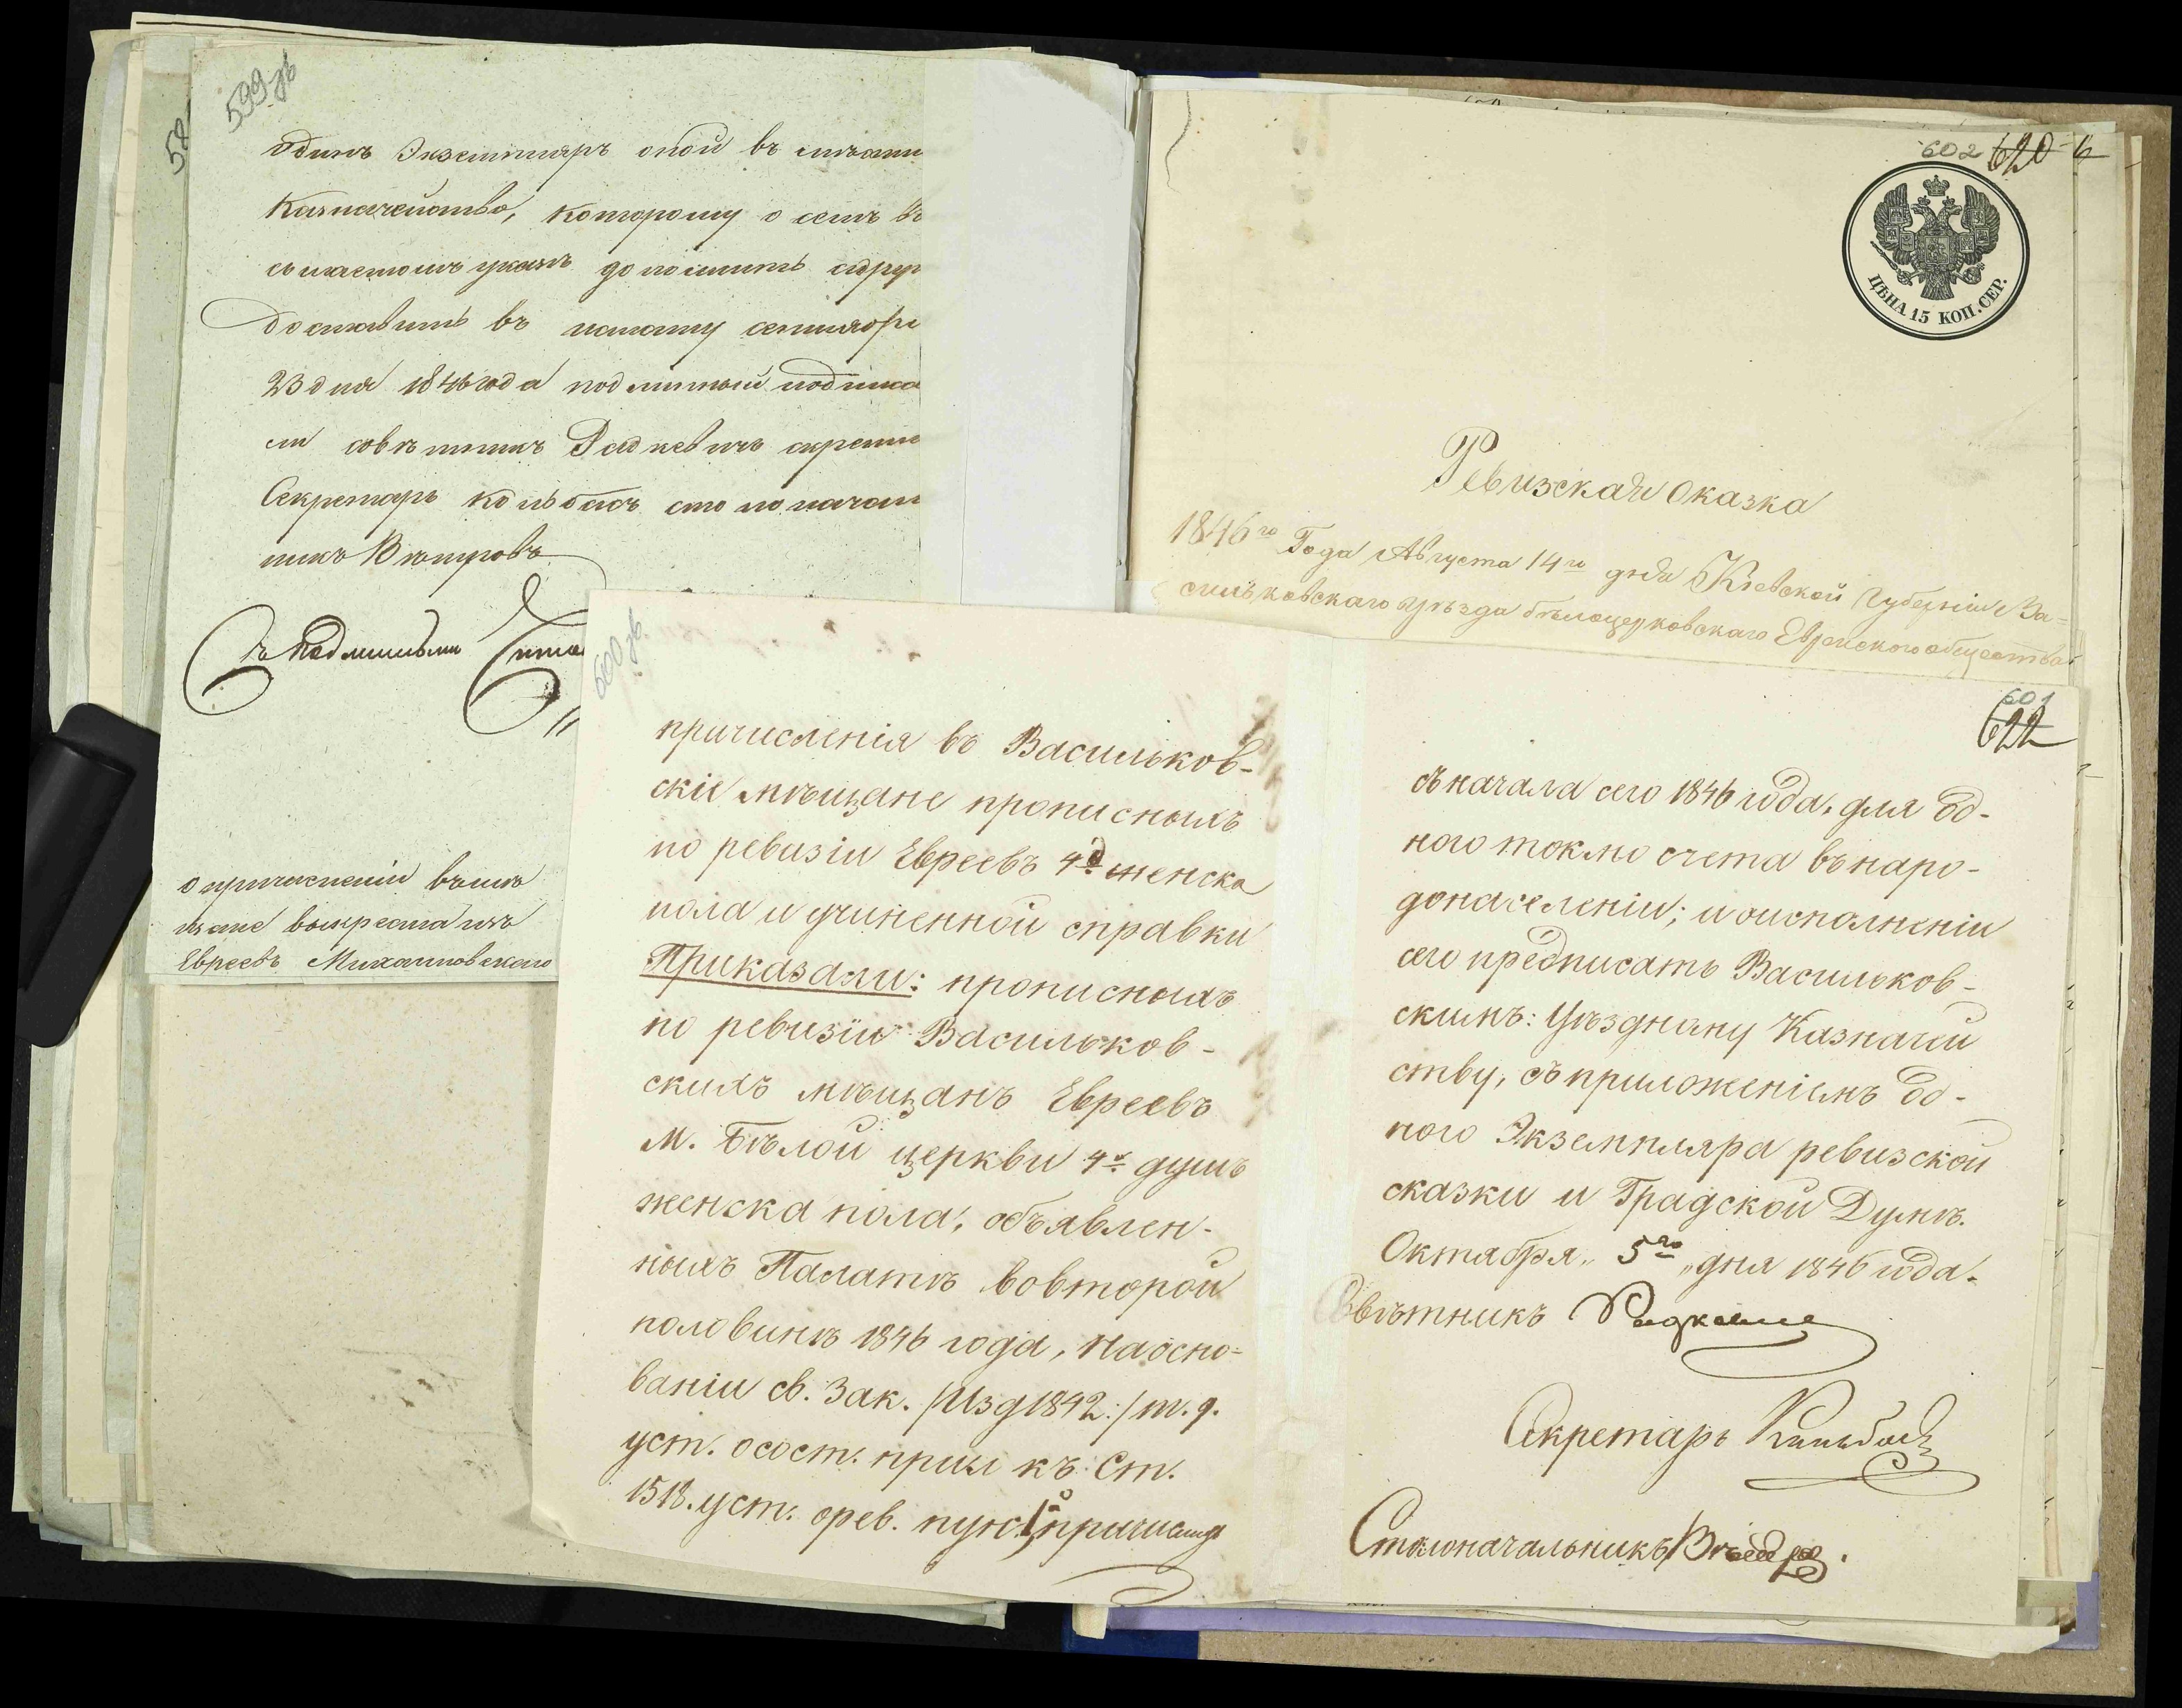 599 зв
58
одинъ Экземпляръ оной въ
Казначейство, которому о семъ
указъ
доставить въ палату сентября
23 дня 1846 года подлинный подписа
ли совѣтникъ Радкевичъ скрепи
Секретарь столоначаль
никъ Вѣтровъ
Съ подлиннымъ
о причисленіи въ мѣ
щане выкреста изъ
Евреевъ Михайловскаго
602 620
ЦѢНА 15 КОП. СЕР.
Ревизская Сказка
1846го Года Августа 14го дня Кіевской Губерніи Ва=
сильковскаго уѣзда бѣлоцерковскаго Еврейского общества
600 зв.
причисленія въ Васильков-
скіе мѣщане прописныхъ
по ревизіи Евреевъ 4х женска
пола и учиненной справки
Приказали: прописныхъ
по ревизіи Васильков-
скихъ мѣщанъ Евреевъ
М. Бѣлой церкви 4х душъ
женска пола, объявлен-
ныхъ Палатѣ вовторой
половинѣ 1846 года, наосно=
ваніи св. Зак. /Изд 1842:/ т. 9.
уст. осост. прил къ Ст.
1518. уст. орев. пунк. 1 причислить
601
622
съ начала сего 1846 года, для од-
ного токмо счета въ наро-
донаселеніи; и оисполненіи
сего предписать Васильков-
скимъ: Уѣздному Казначей
ству, съ приложеніемъ од-
ного Экземпляра ревизской
сказки и Градской Думѣ.
Октября „ 5го „ дня 1846 года.
Совѣтникъ Радкевичъ
Секретарь
Столоначальникъ Вѣтровъ.